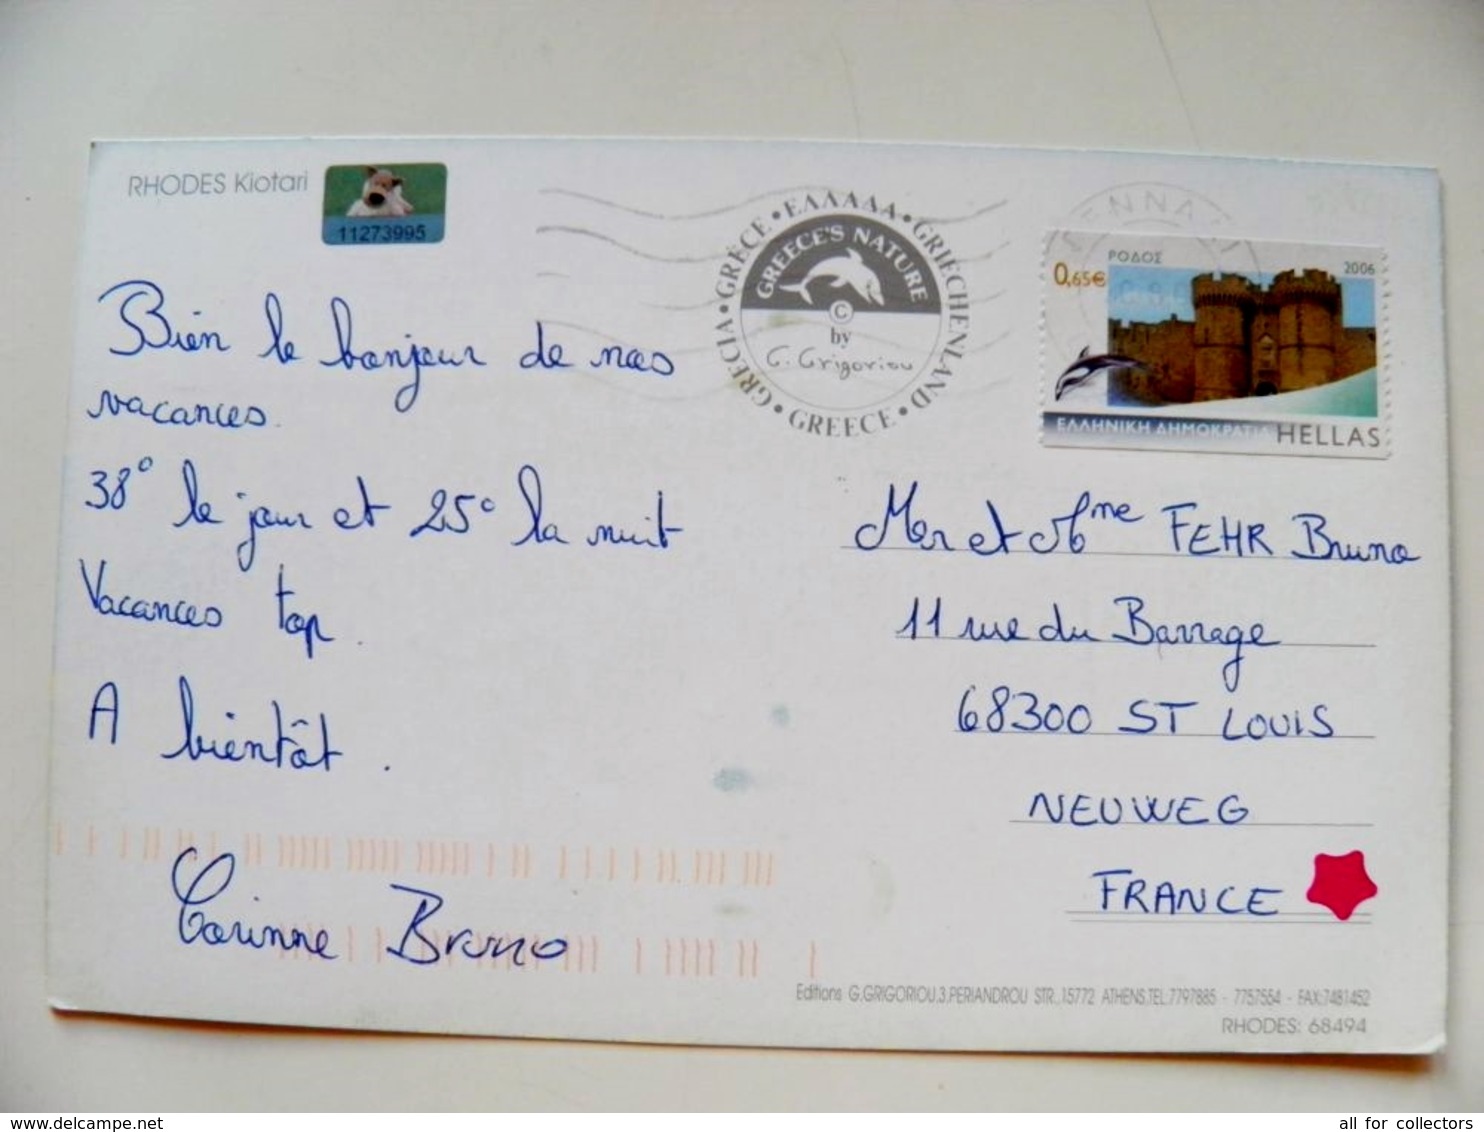 RHODES Kiotari
11273995
Bien le bonjour de nos
vacances.
38° le jour et 25° la nuit
Vacances top.
A bientôt.
Corinne Bruno
GRECIA • GRÈCE • ΕΛΛΑΔΑ • GRIECHENLAND • GREECE •
GREECE'S NATURE
©
by
G. Grigoriou
ΡΟΔΟΣ
2006
0,65€
ΕΛΛΗΝΙΚΗ ΔΗΜΟΚΡΑΤΙΑ HELLAS
Mr et Mme FEHR Bruno
11 rue du Barrage
68300 ST LOUIS
NEUWEG
FRANCE
Editions G.GRIGORIOU,3,PERIANDROU STR.,15772 ATHENS,TEL.7797885 - 7757554 - FAX:7481452
RHODES: 68494
www.delcampe.net
all for collectors